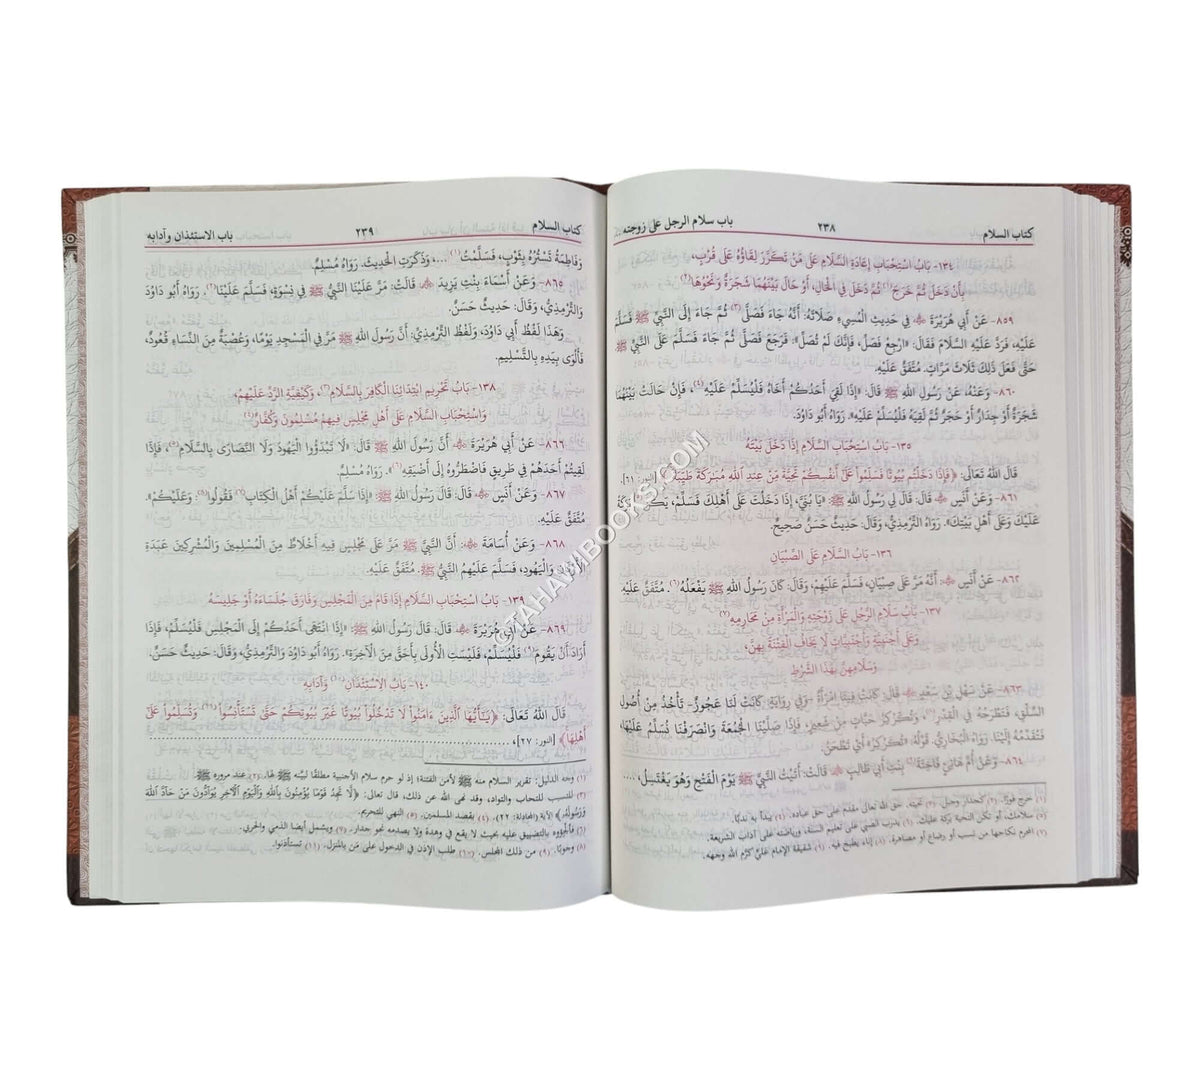 كتاب السلام ٢٣٨ باب سلام الرجل على زوجته
١٣٤- بَابُ اسْتِحْبَابِ إِعَادَةِ السَّلَامِ عَلَى مَنْ تَكَرَّرَ لِقَاؤُهُ عَلَى قُرْبٍ،
بِأَنْ دَخَلَ ثُمَّ خَرَجَ(١) ثُمَّ دَخَلَ فِي الحَالِ، أَوْ حَالَ بَيْنَهُمَا شَجَرَةٌ وَنَحْوُهَا(٢)
٨٥٩- عَنْ أَبِي هُرَيْرَةَ ﷺ فِي حَدِيثِ المُسِيءِ صَلَاتَهُ: أَنَّهُ جَاءَ فَصَلَّى(٣) ثُمَّ جَاءَ إِلَى النَّبِيِّ ﷺ فَسَلَّمَ
عَلَيْهِ، فَرَدَّ عَلَيْهِ السَّلَامَ فَقَالَ: «ارْجِعْ فَصَلِّ، فَإِنَّكَ لَمْ تُصَلِّ»: فَرَجَعَ فَصَلَّى ثُمَّ جَاءَ فَسَلَّمَ عَلَى النَّبِيِّ ﷺ،
حَتَّى فَعَلَ ذَلِكَ ثَلَاثَ مَرَّاتٍ. مُتَّفَقٌ عَلَيْهِ.
٨٦٠- وَعَنْهُ، عَنْ رَسُولِ اللهِ ﷺ قَالَ: «إِذَا لَقِيَ أَحَدُكُمْ أَخَاهُ فَلْيُسَلِّمْ عَلَيْهِ(٤)، فَإِنْ حَالَتْ بَيْنَهُمَا
شَجَرَةٌ أَوْ جِدَارٌ أَوْ حَجَرٌ ثُمَّ لَقِيَهُ فَلْيُسَلِّمْ عَلَيْهِ». رَوَاهُ أَبُو دَاوُدَ.
١٣٥- بَابُ اسْتِحْبَابِ السَّلَامِ إِذَا دَخَلَ بَيْتَهُ
قَالَ اللهُ تَعَالَى: ﴿فَإِذَا دَخَلْتُم بُيُوتًا فَسَلِّمُوا عَلَىٰ أَنفُسِكُمْ تَحِيَّةً مِّنْ عِندِ اللَّهِ مُبَارَكَةً طَيِّبَةً﴾ [النور: ٦١].
٨٦١- وَعَنْ أَنَسٍ ﷺ قَالَ: قَالَ لِي رَسُولُ اللهِ ﷺ: «يَا بُنَيَّ، إِذَا دَخَلْتَ عَلَى أَهْلِكَ فَسَلِّمْ، يَكُنْ بَرَكَةً
عَلَيْكَ وَعَلَى أَهْلِ بَيْتِكَ». رَوَاهُ التِّرْمِذِيُّ، وَقَالَ: حَدِيثٌ حَسَنٌ صَحِيحٌ.
١٣٦- بَابُ السَّلَامِ عَلَى الصِّبْيَانِ
٨٦٢- عَنْ أَنَسٍ أَنَّهُ مَرَّ عَلَى صِبْيَانٍ، فَسَلَّمَ عَلَيْهِمْ، وَقَالَ: كَانَ رَسُولُ اللهِ ﷺ يَفْعَلُهُ(٦). مُتَّفَقٌ عَلَيْهِ.
١٣٧- بَابُ سَلَامِ الرَّجُلِ عَلَى زَوْجَتِهِ وَالمَرْأَةِ مِنْ مَحَارِمِهِ(٧)
وَعَلَى أَجْنَبِيَّةٍ وَأَجْنَبِيَّاتٍ لَا يَخَافُ الفِتْنَةَ بِهِنَّ،
وَسَلَامِهِنَّ بِهَذَا الشَّرْطِ
٨٦٣- عَنْ سَهْلِ بْنِ سَعْدٍ قَالَ: كَانَتْ فِينَا امْرَأَةٌ -وَفِي رِوَايَةٍ: كَانَتْ لَنَا عَجُوزٌ- تَأْخُذُ مِنْ أُصُولِ
السِّلْقِ، فَتَطْرَحُهُ فِي القِدْرِ(٨)، وَتُكَرْكِرُ حَبَّاتٍ مِنْ شَعِيرٍ، فَإِذَا صَلَّيْنَا الجُمُعَةَ وَانْصَرَفْنَا نُسَلِّمُ عَلَيْهَا،
فَتُقَدِّمُهُ إِلَيْنَا. رَوَاهُ البُخَارِيُّ. قَوْلُهُ: «تُكَرْكِرُ» أَيْ تَطْحَنُ.
٨٦٤- وَعَنْ أُمِّ هَانِئٍ فَاخِتَةَ(٩) بِنْتِ أَبِي طَالِبٍ قَالَتْ: أَتَيْتُ النَّبِيَّ ﷺ يَوْمَ الفَتْحِ وَهُوَ يَغْتَسِلُ، ....
كتاب السلام ٢٣٩ باب الاستئذان وآدابه
وَفَاطِمَةُ تَسْتُرُهُ بِثَوْبٍ، فَسَلَّمْتُ(١) ...، وَذَكَرَتِ الحَدِيثَ. رَوَاهُ مُسْلِمٌ.
٨٦٥- وَعَنْ أَسْمَاءَ بِنْتِ يَزِيدَ قَالَتْ: مَرَّ عَلَيْنَا النَّبِيُّ ﷺ فِي نِسْوَةٍ، فَسَلَّمَ عَلَيْنَا(٢). رَوَاهُ أَبُو دَاوُدَ
وَالتِّرْمِذِيُّ، وَقَالَ: حَدِيثٌ حَسَنٌ.
وَهَذَا لَفْظُ أَبِي دَاوُدَ، وَلَفْظُ التِّرْمِذِيِّ: أَنَّ رَسُولَ اللهِ ﷺ مَرَّ فِي المَسْجِدِ يَوْمًا، وَعُصْبَةٌ مِنَ النِّسَاءِ قُعُودٌ،
فَأَلْوَى بِيَدِهِ بِالتَّسْلِيمِ.
١٣٨- بَابُ تَحْرِيمِ ابْتِدَائِنَا الكَافِرَ بِالسَّلَامِ(٣)، وَكَيْفِيَّةِ الرَّدِّ عَلَيْهِمْ،
وَاسْتِحْبَابِ السَّلَامِ عَلَى أَهْلِ مَجْلِسٍ فِيهِمْ مُسْلِمُونَ وَكُفَّارٌ(٤)
٨٦٦- عَنْ أَبِي هُرَيْرَةَ أَنَّ رَسُولَ اللهِ ﷺ قَالَ: «لَا تَبْدَؤُوا اليَهُودَ وَلَا النَّصَارَى بِالسَّلَامِ(٥)، فَإِذَا
لَقِيتُمْ أَحَدَهُمْ فِي طَرِيقٍ فَاضْطَرُّوهُ إِلَى أَضْيَقِهِ(٦)». رَوَاهُ مُسْلِمٌ.
٨٦٧- وَعَنْ أَنَسٍ قَالَ: قَالَ رَسُولُ اللهِ ﷺ: «إِذَا سَلَّمَ عَلَيْكُمْ أَهْلُ الكِتَابِ(٧) فَقُولُوا(٨): وَعَلَيْكُمْ».
مُتَّفَقٌ عَلَيْهِ.
٨٦٨- وَعَنْ أُسَامَةَ: أَنَّ النَّبِيَّ ﷺ مَرَّ عَلَى مَجْلِسٍ فِيهِ أَخْلَاطٌ مِنَ المُسْلِمِينَ وَالمُشْرِكِينَ عَبَدَةِ
وَاليَهُودِ، فَسَلَّمَ عَلَيْهِمُ النَّبِيُّ ﷺ. مُتَّفَقٌ عَلَيْهِ.
١٣٩- بَابُ اسْتِحْبَابِ السَّلَامِ إِذَا قَامَ مِنَ المَجْلِسِ وَفَارَقَ جُلَسَاءَهُ أَوْ جَلِيسَهُ
٨٦٩- عَنْ أَبِي هُرَيْرَةَ قَالَ: قَالَ رَسُولُ اللهِ ﷺ: «إِذَا انْتَهَى أَحَدُكُمْ إِلَى المَجْلِسِ فَلْيُسَلِّمْ، فَإِذَا
أَرَادَ أَنْ يَقُومَ(٩) فَلْيُسَلِّمْ، فَلَيْسَتِ الأُولَى بِأَحَقَّ مِنَ الآخِرَةِ». رَوَاهُ أَبُو دَاوُدَ وَالتِّرْمِذِيُّ، وَقَالَ: حَدِيثٌ حَسَنٌ.
١٤٠- بَابُ الِاسْتِئْذَانِ(١٠) وَآدَابِهِ
قَالَ اللهُ تَعَالَى: ﴿يَا أَيُّهَا الَّذِينَ ءَامَنُوا لَا تَدْخُلُوا بُيُوتًا غَيْرَ بُيُوتِكُمْ حَتَّىٰ تَسْتَأْنِسُوا(١١) وَتُسَلِّمُوا عَلَىٰ
أَهْلِهَا﴾ [النور: ٢٧]، ..........
(١) وجه الدليل: تقرير السلام منه ﷺ لأمن الفتنة؛ إذ لو حرم سلام الأجنبية مطلقًا لبينه ﷺ لها. (٢) عند مروره ﷺ
(٣) للتسبب للتحاب والتواد، وقد نهى الله عن ذلك، قال تعالى: ﴿لَّا تَجِدُ قَوْمًا يُؤْمِنُونَ بِاللَّهِ وَالْيَوْمِ الْآخِرِ يُوَادُّونَ مَنْ حَادَّ اللَّهَ
وَرَسُولَهُ﴾ الآية [المجادلة: ٢٢]. (٤) بقصد المسلمين. (٥) النهي للتحريم.
(٦) فألجئوه بالتضييق عليه بحيث لا يقع في وهدة ولا يصدمه نحو جدار. (٧) ويشمل أيضا الذمي والحربي.
(٨) وجوبًا. (٩) من ذلك المجلس. (١٠) طلب الإذن في الدخول على مَن بالمنزل. (١١) تستأذنوا.
©TAHAWIBOOKS.COM